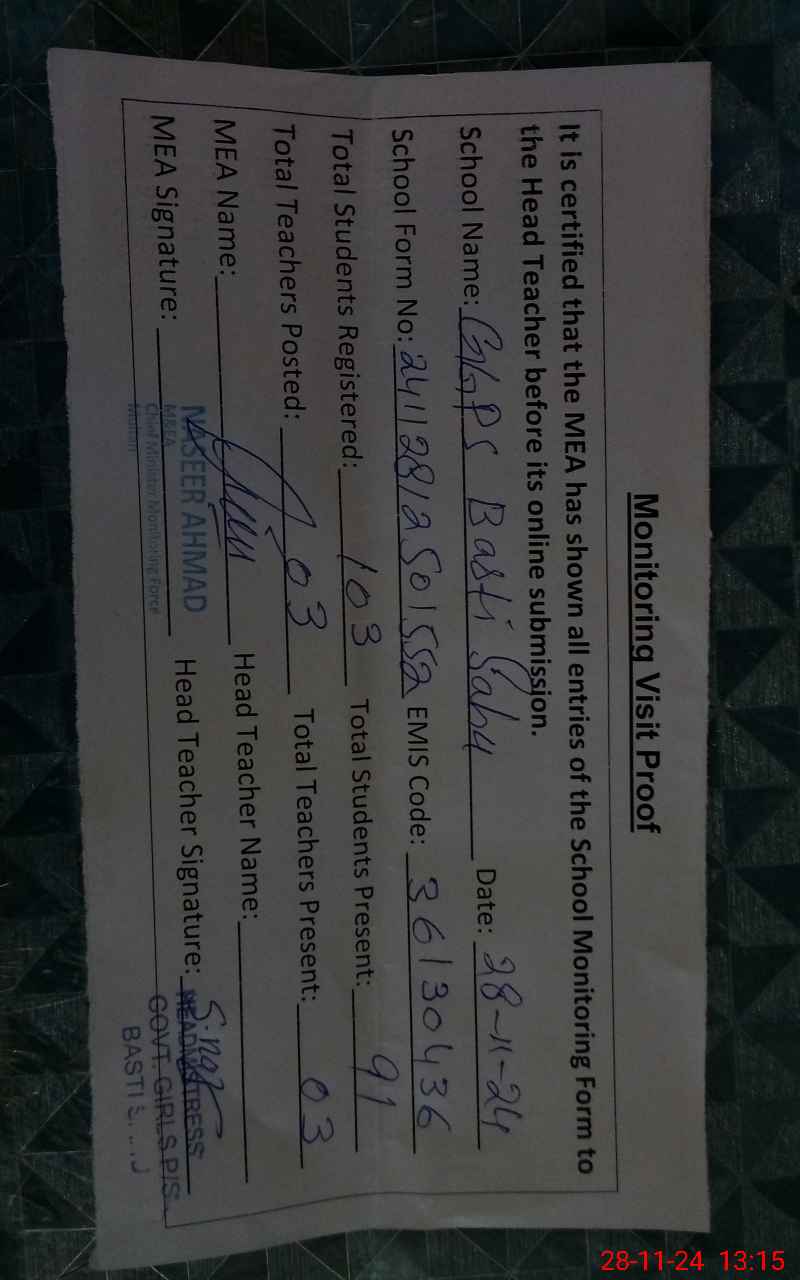 Monitoring Visit Proof
It is certified that the MEA has shown all entries of the School Monitoring Form to
the Head Teacher before its online submission.
School Name: GGPS Basti Sahu Date: 28-11-24
School Form No: 24112812501552 EMIS Code: 36130436
Total Students Registered: 103 Total Students Present: 91
Total Teachers Posted: 03 Total Teachers Present: 03
MEA Name: Head Teacher Name:
MEA Signature: Head Teacher Signature:
NASEER AHMAD
M&EA
Chief Minister Monitoring Force
HEADMISTRESS
GOVT. GIRLS P/S.
BASTI
28-11-24 13:15